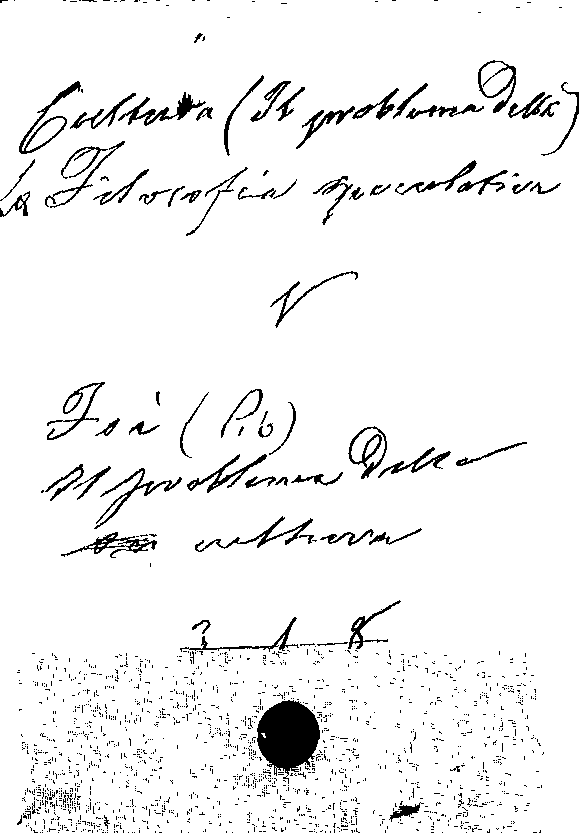 Cultura (Il problema della)
La Filosofia speculativa
V
Foà (Pio)
Il problema della
cultura
3 1 8